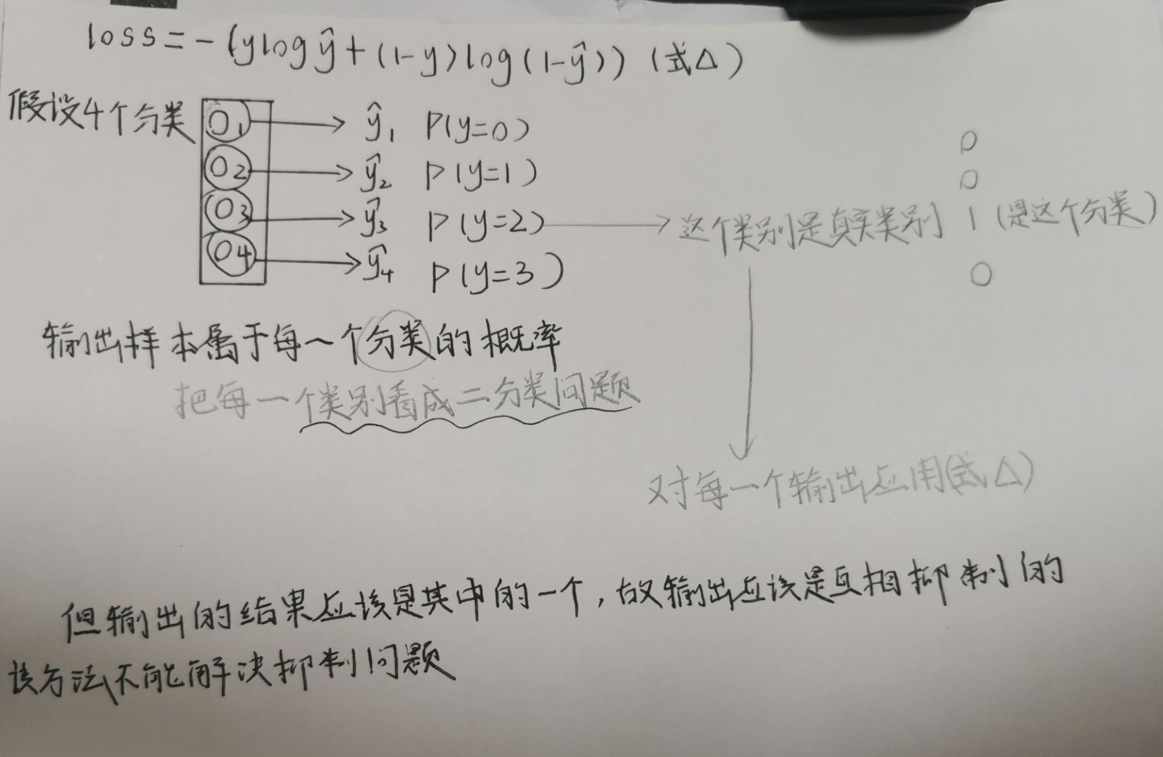 loss = - (ylogŷ + (1-y)log(1-ŷ)) (式△)
假设4个分类
O1 ŷ1 P(y=0)
0
O2 ŷ2 P(y=1)
0
O3 ŷ3 P(y=2) 这个类别是真实类别 1 (是这个分类)
O4 ŷ4 P(y=3)
0
输出样本属于每一个分类的概率
把每一个类别看成二分类问题
对每一个输出应用(式△)
但输出的结果应该是其中的一个,故输出应该是互相抑制的
该方法不能解决抑制问题